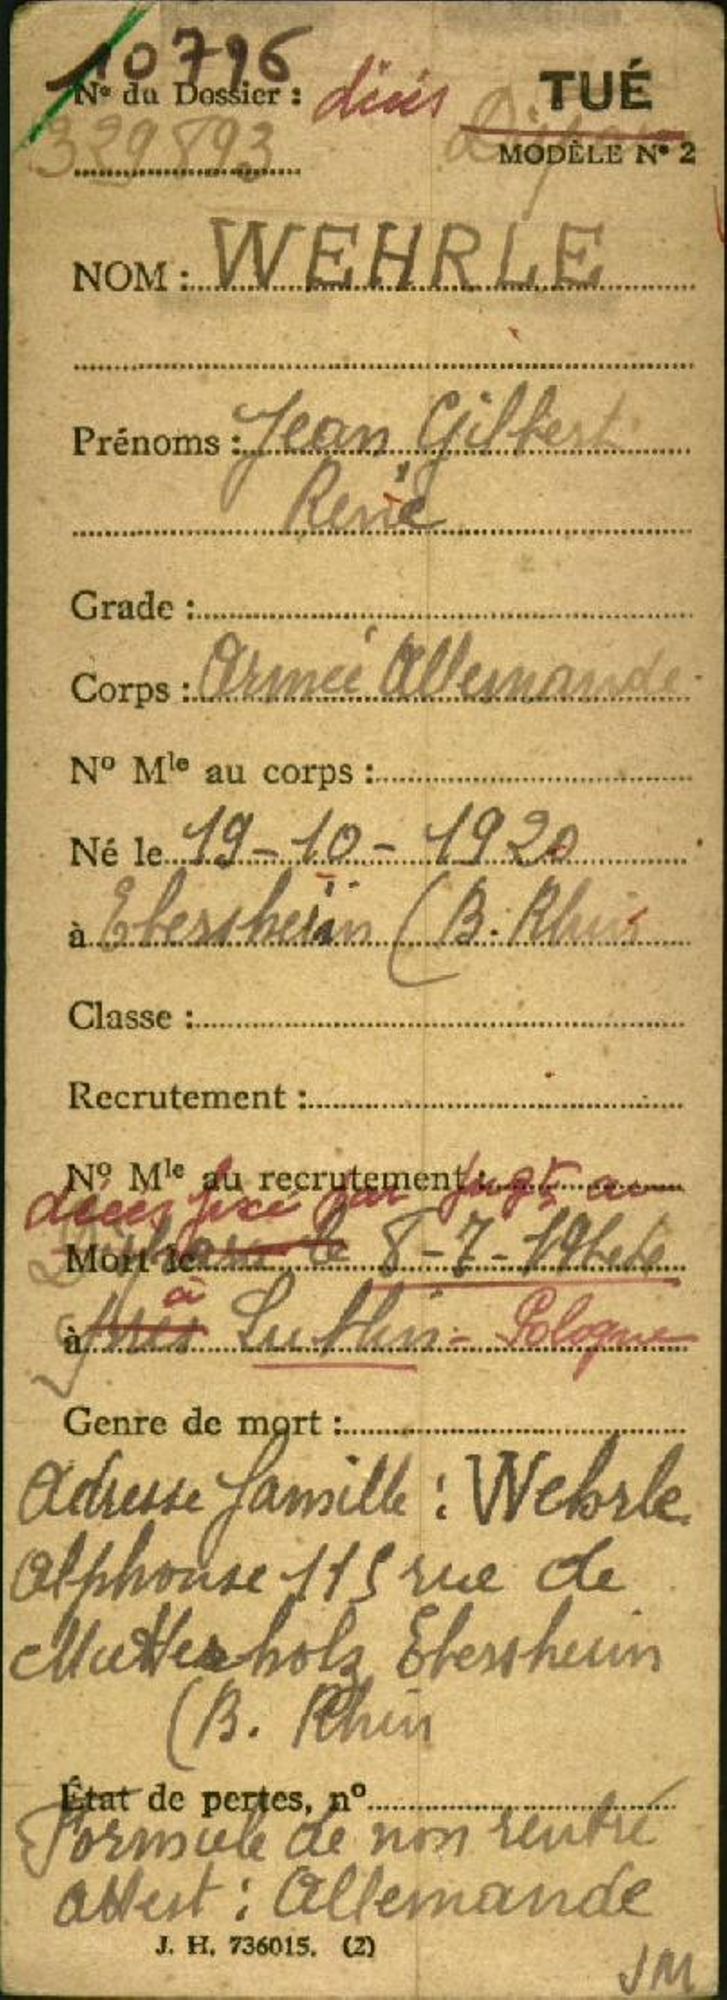 10796
N° du Dossier : décès TUÉ
329893 Disparu
MODÈLE N° 2
NOM : WEHRLE
Prénoms : Jean Gilbert
René
Grade :
Corps : Armée Allemande
N° Mle au corps :
Né le 19-10-1920
à Ebersheim (B. Rhin
Classe :
Recrutement :
N° Mle au recrutement :
décès fixé par jugt au
Mort le Disparu le 8-7-1944
à
à près Lublin - Pologne
Genre de mort :
Adresse famille : Wehrle
Alphonse 115 rue de
Muttersholz Ebersheim
(B. Rhin
État de pertes, n°
Formule de non rentré
Attest : Allemande
J. H. 736015. (2)
JM